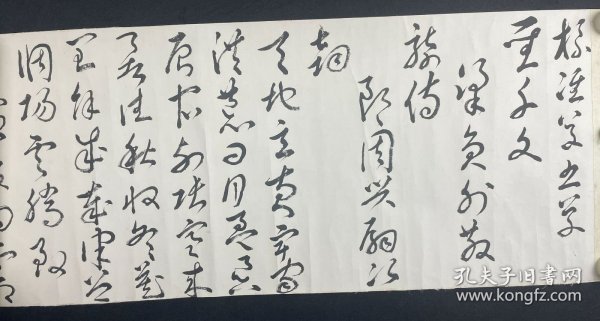 標准草书草
聖千文
梁員外散
騎侍
郎周興嗣次
韵
天地玄黄宇宙
洪荒日月盈昃
辰宿列張寒来
暑往秋收冬藏
閏餘成歲律吕
調陽雲騰致
孔夫子旧书网
www.kongfz.com